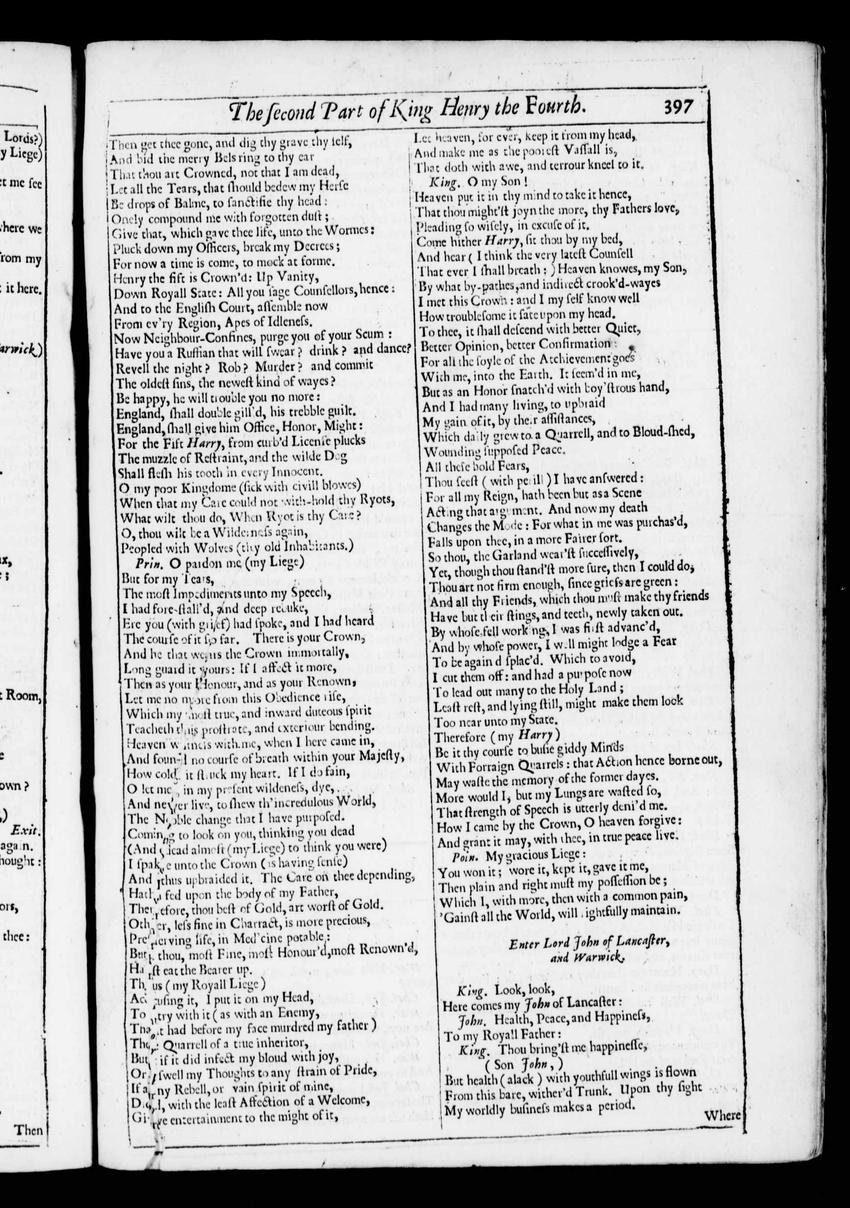 Lords?)
y Liege)
et me ſee
here we
rom my
it here.
arwick.)
t Room,
own?
Exit.
again.
hought:
ors,
thee:
Then
The ſecond Part of King Henry the Fourth. 397
Then get thee gone, and dig thy grave thy ſelf,
And bid the merry Bels ring to thy ear
That thou art Crowned, not that I am dead,
Let all the Tears, that ſhould bedew my Herſe
Be drops of Balme, to ſanctifie thy head:
Onely compound me with forgotten duſt;
Give that, which gave thee life, unto the Wormes:
Pluck down my Officers, break my Decrees;
For now a time is come, to mock at forme.
Henry the fift is Crown'd: Up Vanity,
Down Royall State: All you ſage Counſellors, hence:
And to the Engliſh Court, aſſemble now
From ev'ry Region, Apes of Idleneſs.
Now Neighbour-Confines, purge you of your Scum:
Have you a Ruffian that will ſwear? drink? and dance?
Revell the night? Rob? Murder? and commit
The oldeſt ſins, the neweſt kind of wayes?
Be happy, he will trouble you no more:
England, ſhall double gill'd, his trebble guilt.
England, ſhall give him Office, Honor, Might:
For the Fift Harry, from curb'd Licenſe plucks
The muzzle of Reſtraint, and the wilde Dog
Shall fleſh his tooth in every Innocent.
O my poor Kingdome (ſick with civill blowes)
When that my Care could not with-hold thy Ryots,
What wilt thou do, When Ryot is thy Care?
O, thou wilt be a Wilderneſs again,
Peopled with Wolves (thy old Inhabitants.)
Prin. O pardon me (my Liege)
But for my Tears,
The moſt Impediments unto my Speech,
I had fore-ſtall'd, and deep rebuke,
Ere you (with grief) had ſpoke, and I had heard
The courſe of it ſo far. There is your Crown,
And he that wears the Crown immortally,
Long guard it yours: If I affect it more,
Then as your Honour, and as your Renown,
Let me no more from this Obedience riſe,
Which my moſt true, and inward duteous ſpirit
Teacheth this proſtrate, and exteriour bending.
Heaven witneſs with me, when I here came in,
And found no courſe of breath within your Majeſty,
How cold it ſtuck my heart. If I do fain,
O let me, in my preſent wildeneſs, dye,
And never live, to ſhew th'incredulous World,
The Noble change that I have purpoſed.
Coming to look on you, thinking you dead
(And dead almoſt (my Liege) to think you were)
I ſpake unto the Crown (as having ſenſe)
And thus upbraided it. The Care on thee depending,
Hath fed upon the body of my Father,
Therefore, thou beſt of Gold, art worſt of Gold.
Other, leſs fine in Charract, is more precious,
Preſerving life, in Med'cine potable:
But thou, moſt Fine, moſt Honour'd, moſt Renown'd,
Haſt eat the Bearer up.
Thus (my Royall Liege)
Accuſing it, I put it on my Head,
To try with it (as with an Enemy,
That had before my face murdred my father)
The Quarrell of a true inheritor,
But if it did infect my bloud with joy,
Or ſwell my Thoughts to any ſtrain of Pride,
If any Rebell, or vain ſpirit of mine,
Did, with the leaſt Affection of a Welcome,
Give entertainment to the might of it,
Let heaven, for ever, keep it from my head,
And make me as the pooreſt Vaſſall is,
That doth with awe, and terrour kneel to it.
King. O my Son!
Heaven put it in thy mind to take it hence,
That thou might'ſt joyn the more, thy Fathers love,
Pleading ſo wiſely, in excuſe of it.
Come hither Harry, ſit thou by my bed,
And hear (I think the very lateſt Counſell
That ever I ſhall breath:) Heaven knowes, my Son,
By what by-pathes, and indirect crook'd-wayes
I met this Crown: and I my ſelf know well
How troubleſome it ſate upon my head.
To thee, it ſhall deſcend with better Quiet,
Better Opinion, better Confirmation:
For all the ſoyle of the Atchievement goes
With me, into the Earth. It ſeem'd in me,
But as an Honor ſnatch'd with boy'ſtrous hand,
And I had many living, to upbraid
My gain of it, by their aſſiſtances,
Which daily grew to a Quarrell, and to Bloud-ſhed,
Wounding ſuppoſed Peace.
All theſe bold Fears,
Thou ſeeſt (with perill) I have anſwered:
For all my Reign, hath been but as a Scene
Acting that argument. And now my death
Changes the Mode: For what in me was purchas'd,
Falls upon thee, in a more Fairer ſort.
So thou, the Garland wear'ſt ſucceſſively,
Yet, though thou ſtand'ſt more ſure, then I could do,
Thou art not firm enough, ſince griefs are green:
And all thy Friends, which thou muſt make thy friends
Have but their ſtings, and teeth, newly taken out.
By whoſe fell working, I was firſt advanc'd,
And by whoſe power, I well might lodge a Fear
To be again diſplac'd. Which to avoid,
I cut them off: and had a purpoſe now
To lead out many to the Holy Land;
Leaſt reſt, and lying ſtill, might make them look
Too near unto my State.
Therefore (my Harry)
Be it thy courſe to buſie giddy Minds
With Forraign Quarrels: that Action hence borne out,
May waſte the memory of the former dayes.
More would I, but my Lungs are waſted ſo,
That ſtrength of Speech is utterly deni'd me.
How I came by the Crown, O heaven forgive:
And grant it may, with thee, in true peace live.
Poin. My gracious Liege:
You won it; wore it, kept it, gave it me,
Then plain and right muſt my poſſeſſion be;
Which I, with more, then with a common pain,
'Gainſt all the World, will rightfully maintain.
Enter Lord John of Lancaſter,
and Warwick.
King. Look, look,
Here comes my John of Lancaſter:
John. Health, Peace, and Happineſs,
To my Royall Father:
King. Thou bring'ſt me happineſſe,
(Son John,)
But health (alack) with youthfull wings is flown
From this bare, wither'd Trunk. Upon thy ſight
My worldly buſineſs makes a period.
Where